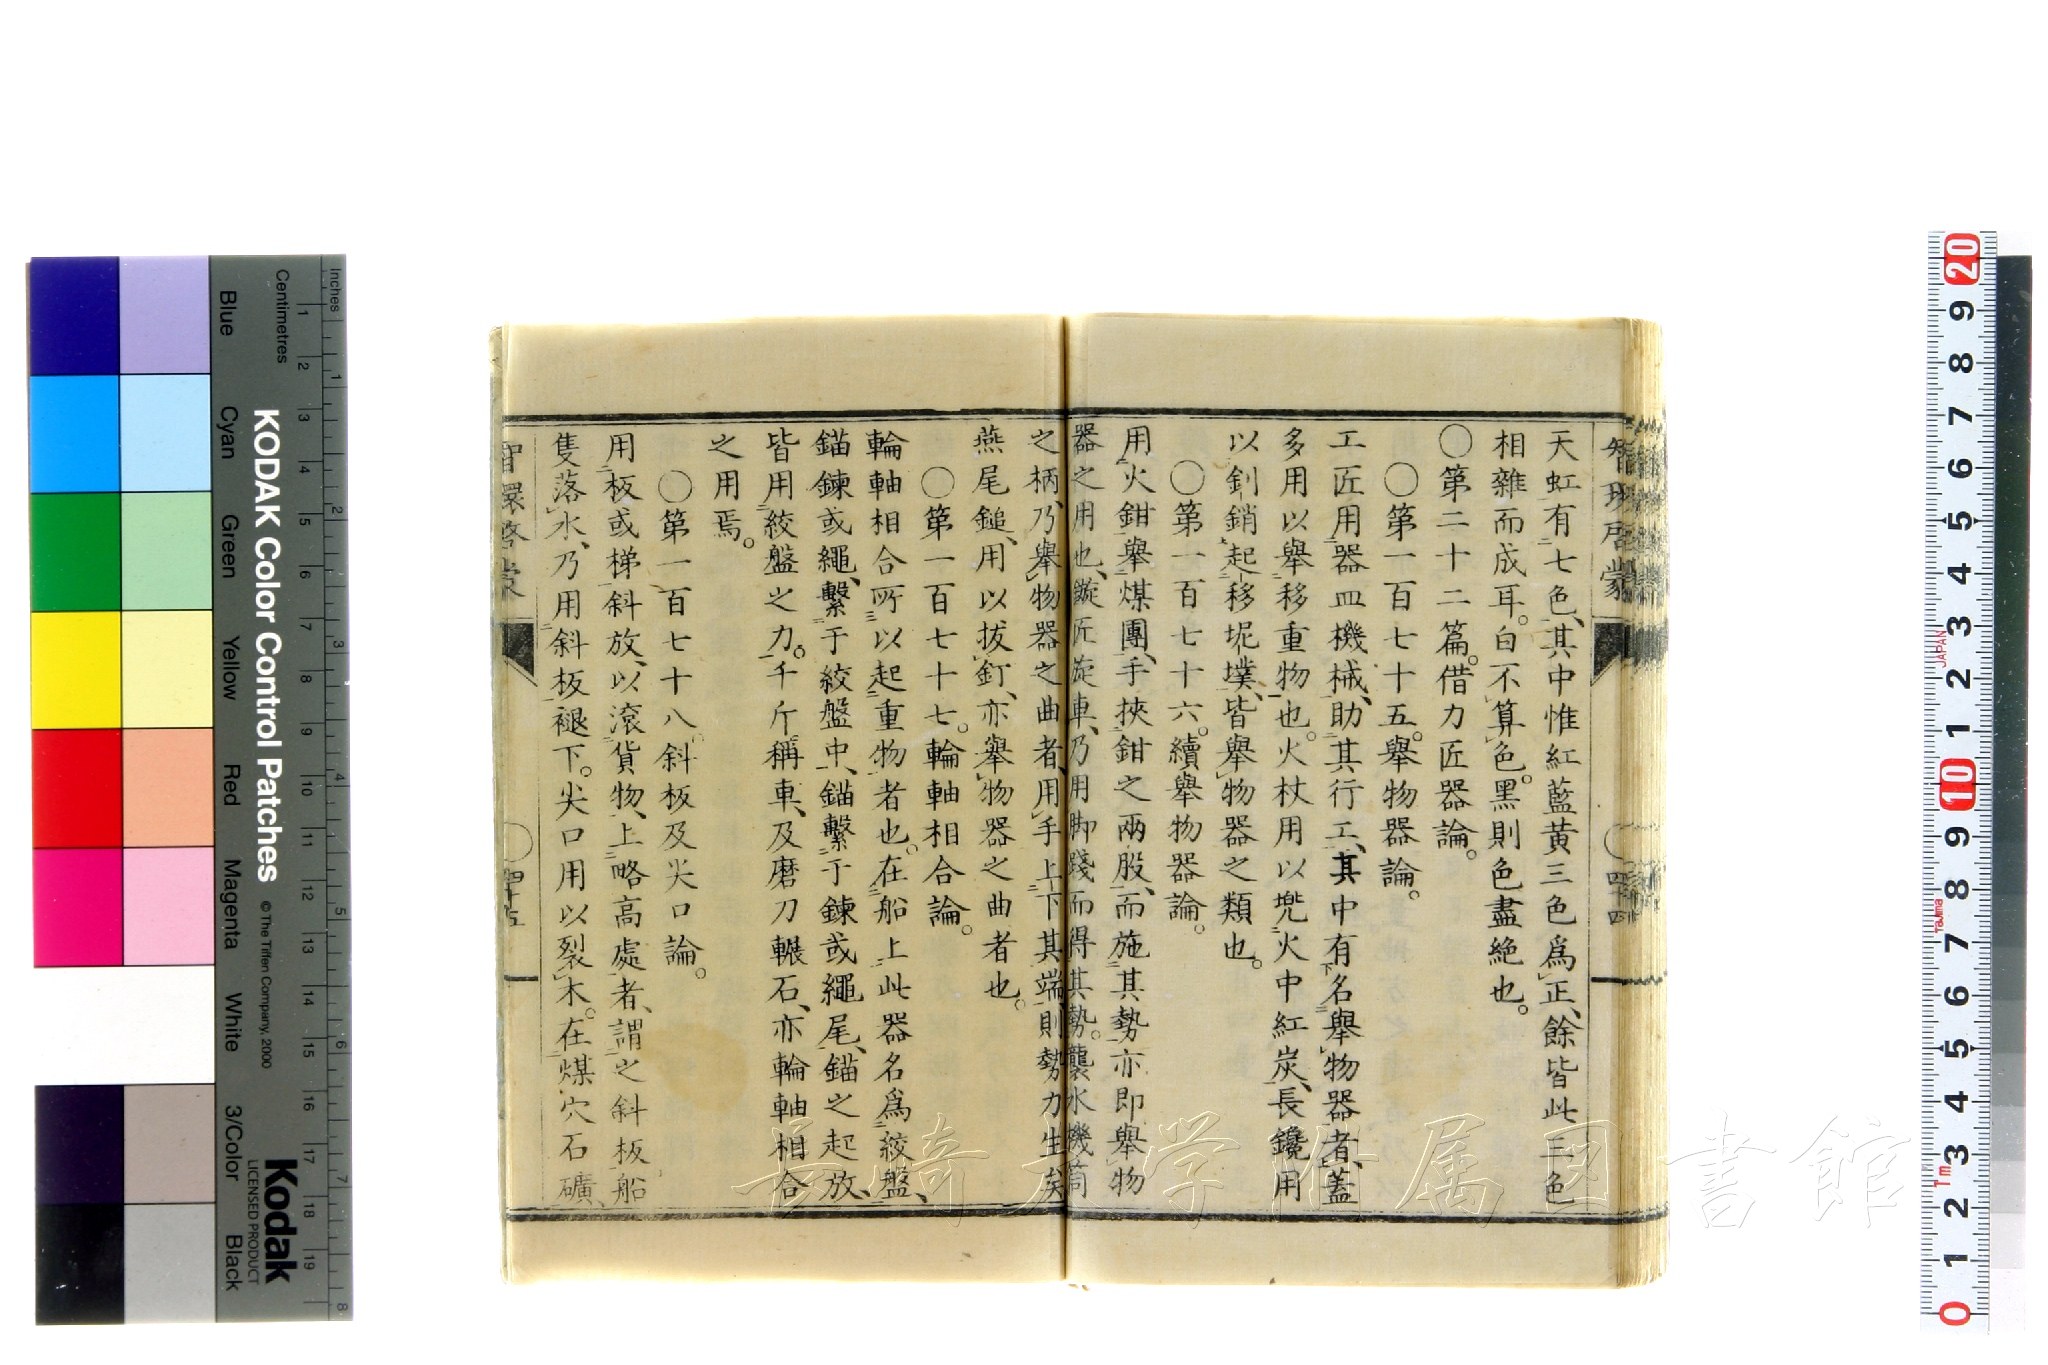 智環啓蒙
四十四
天虹有七色、其中惟紅藍黃三色爲正、餘皆此三色
相雜而成耳。白不算色。黑則色盡絕也。
〇第二十二篇。借力匠器論。
〇第一百七十五。舉物器論。
工匠用器皿機械、助其行工、其中有名舉物器者、蓋
多用以舉移重物也。火杖用以兠火中紅炭、長鑱用
以釗銷起移坭墣、皆舉物器之類也。
〇第一百七十六。續舉物器論。
用火鉗舉煤團、手挾鉗之兩股、而施其勢亦即舉物
器之用也、鏇匠旋車、乃用脚踐而得其勢。襲水機筒
之柄、乃舉物器之曲者、用手上下其端、則勢力生矣
燕尾鎚、用以拔釘、亦舉物器之曲者也。
〇第一百七十七。輪軸相合論。
輪軸相合所以起重物者也。在船上此器名爲絞盤、
錨鍊或繩、繫于絞盤中、錨繫于鍊或繩尾、錨之起放、
皆用絞盤之力。千斤稱車、及磨刀輾石、亦輪軸相合
之用焉。
〇第一百七十八。斜板及尖口論。
用板或梯斜放、以滾貨物、上略高處者、謂之斜板船
隻落水、乃用斜板褪下。尖口用以裂木。在煤穴石礦、
智環啓蒙
四十五
長崎大学附属図書館
KODAK Color Control Patches
© The Tiffen Company, 2000
Kodak
LICENSED PRODUCT
Inches
1 2 3 4 5 6 7 8
Centimetres
1 2 3 4 5 6 7 8 9 10 11 12 13 14 15 16 17 18 19
Blue
Cyan
Green
Yellow
Red
Magenta
White
3/Color
Black
20 9 8 7 6 5 4 3 2 1 10 9 8 7 6 5 4 3 2 1 0
JAPAN
Tajima
Tm